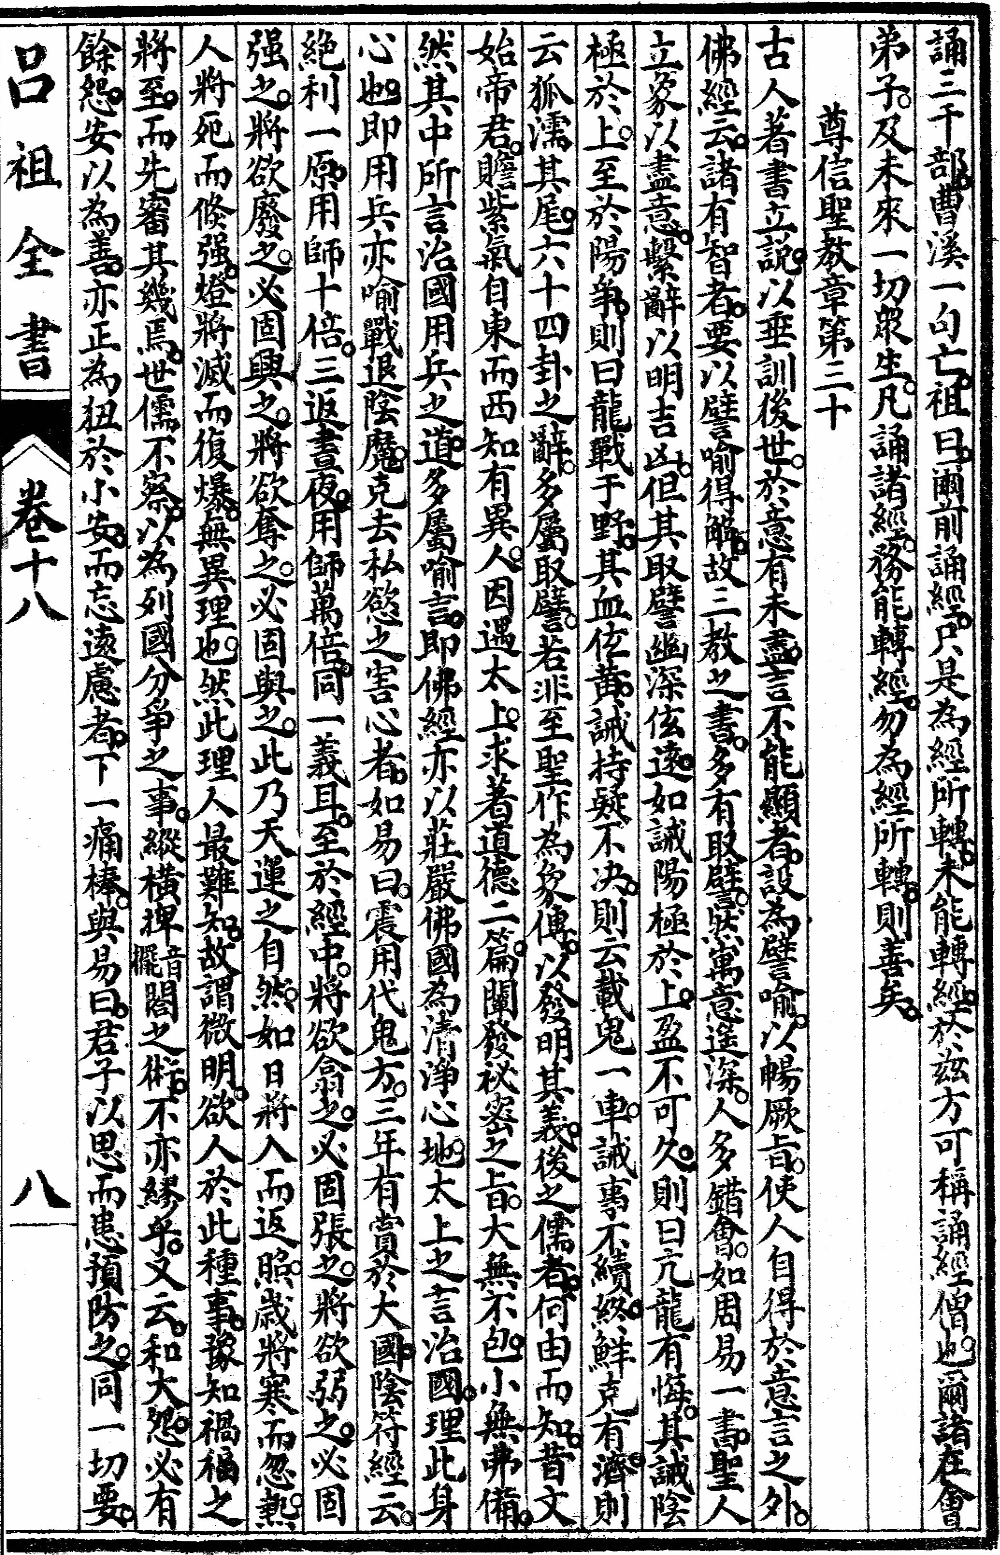 誦三千部曹溪一句亡祖曰爾前誦經只是為經所轉未能轉經於兹方可稱誦經僧也爾諸在會
弟子及未來一切衆生凡誦諸經務能轉經勿為經所轉則善矣
尊信聖教章第三十
古人著書立說以垂訓後世於意有未盡言不能顯者設為譬喻以暢厥旨使人自得於意言之外
佛經云諸有智者要以譬喻得解故三教之書多有取譬狀寓意遙深人多錯會如周易一書聖人
立象以盡意繫辭以明吉凶但其取譬幽深伭遠如誡陽極於上盈不可久則曰亢龍有悔其誡陰
極於上至於陽爭則曰龍戰于野其血伭黃誡持疑不决則云載鬼一車誡事不續終鮮克有濟則
云狐濡其尾六十四卦之辭多屬取譬若非至聖作為象傳以發明其義後之儒者何由而知昔文
始帝君瞻紫氣自東而西知有異人因遇太上求著道德二篇闡發祕密之旨大無不包小無弗備
然其中所言治國用兵之道多屬喻言即佛經亦以莊嚴佛國為清淨心地太上之言治國理此身
心也即用兵亦喻戰退陰魔克去私慾之害心者如易曰震用代鬼方三年有賞於大國陰符經云
絕利一原用師十倍三返晝夜用師萬倍同一義耳至於經中將欲翕之必固張之將欲弱之必固
强之將欲廢之必固興之將欲奪之必固與之此乃天運之自然如日將入而返照歲將寒而忽熱
人將死而倏强燈將滅而復爆無異理也然此理人最難知故謂微明欲人於此種事豫知禍福之
將至而先審其幾焉世儒不察以為列國分爭之事縱橫捭音擺閤之術不亦繆乎又云和大怨必有
餘怨安以為善亦正為狃於小安而忘遠慮者下一痛棒與易曰君子以思而患預防之同一切要
呂祖全書
卷十八
八